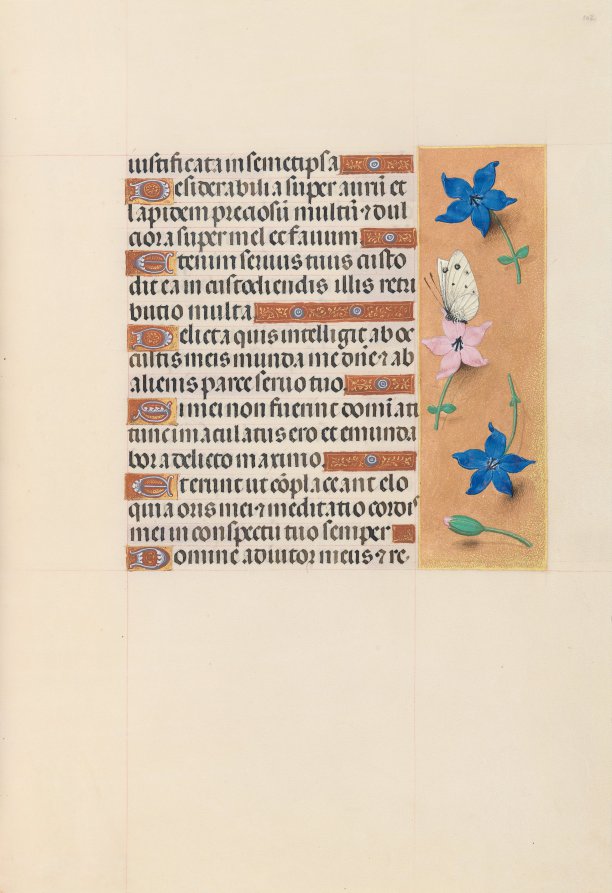 102
iustificata in semetipsa
Desiderabilia super aurū et
lapidem preciosū multū ⁊ dul
ciora super mel et fauum
Etenim seruus tuus custo
dit ea in custodiendis illis retri
butio multa
Delicta quis intelligit ab oc
cultis meis munda me dn̄e ⁊ ab
alienis parce seruo tuo
Si mei non fuerint domīati
tunc imaculatus ero et emunda
bor a delicto maximo
Et erunt ut cōplaceant elo
quia oris mei ⁊ meditatio cordis
mei in conspectu tuo semper
Domine adiutor meus ⁊ re